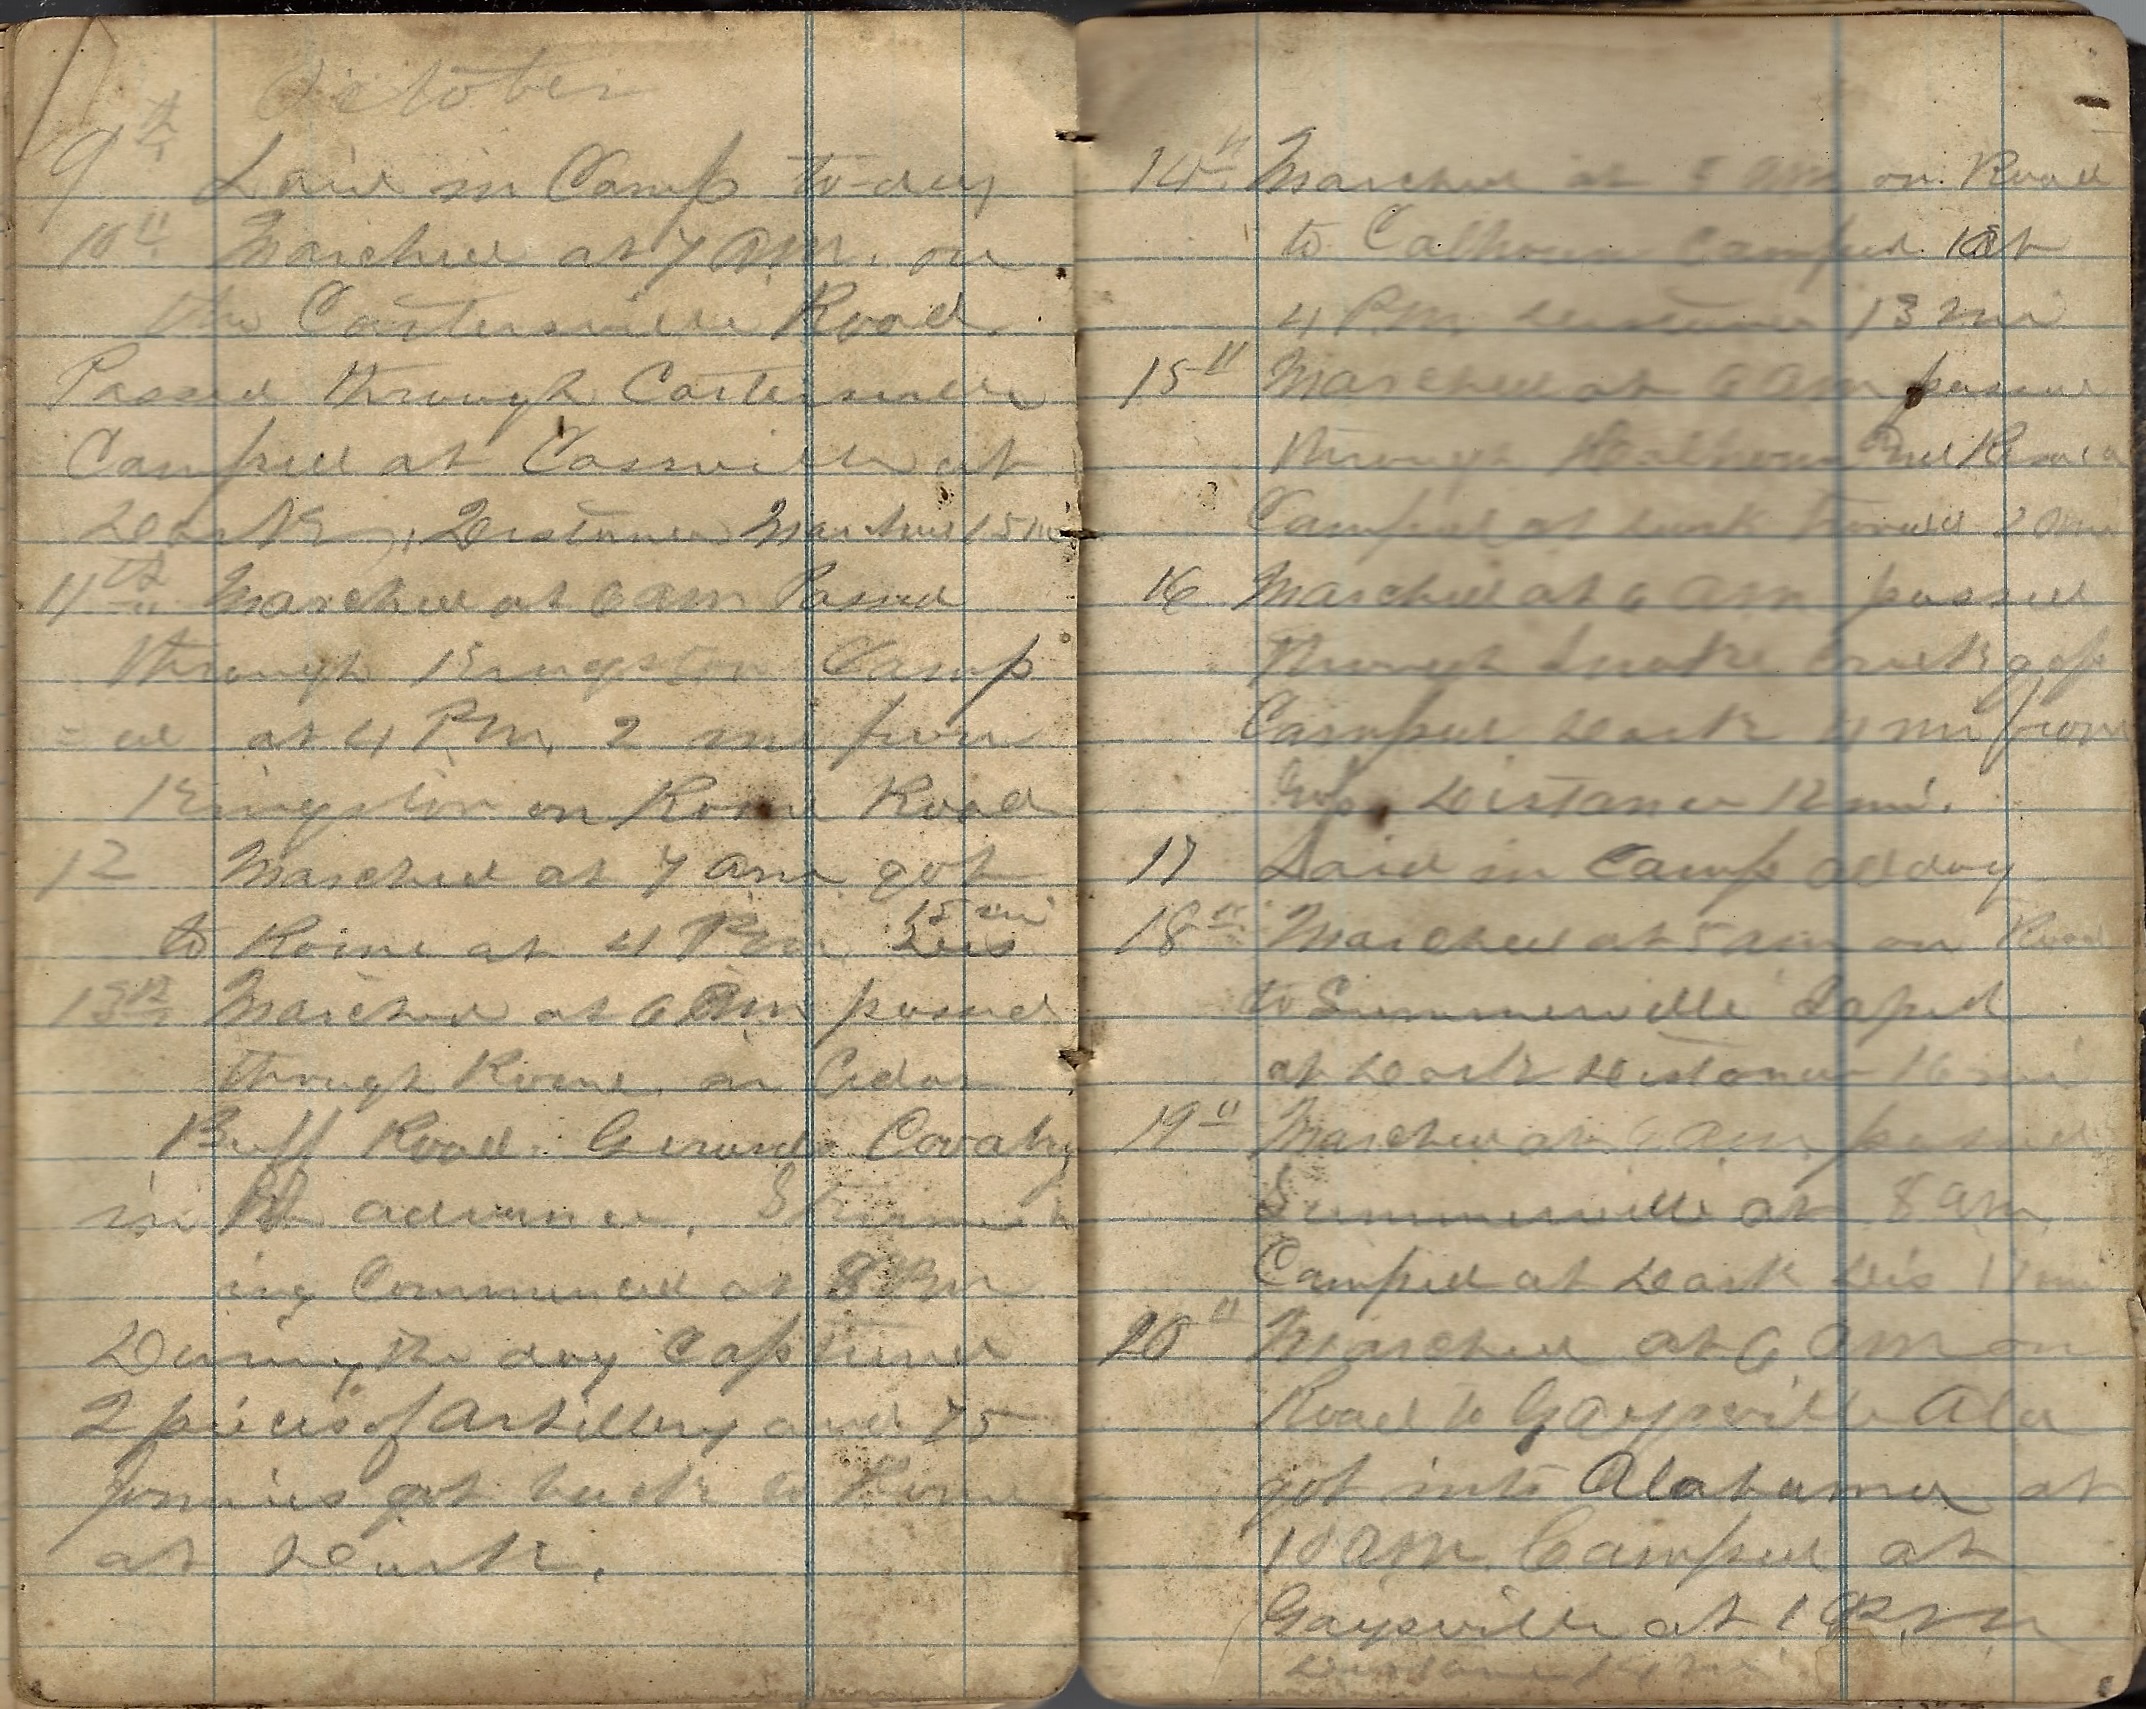 October
9th Laid in Camp to-day
10" Marched at 7 A.M. on
the Cartersville Road
Passed through Cartersville
Camped at Cassville at
Dark, Distance Marched 15 mi
11th Marched at 6 am Passed
through Kingston Camp
=ed at 4 P.M. 2 mi from
Kingston on Rome Road
12 Marched at 7 am got
15 mi
to Rome at 4 P.m. Dis
13th Marched at 6 Am passed
through Rome on Cedar
Bluff Road. Cavalry
in the advance. Skirmish
ing Commenced at 8
During the day Captured
2 pieces of Artillery and 75
Jonnies got back to Rome
at Dark.
14" Marched at am on Road
to Calhoun Camped at
4 P.M. Distance 13 mi
15" Marched at 6 am passed
through Calhoun and Resaca
Camped at Dark 20 mi
16 Marched at 6 am passed
through Snake Creek gap
Camped Dark 4 mi from
Gap Distance 12 mi.
17 Laid in Camp all day
18" Marched at 5 am on Road
to Summerville
at Dark Distance 16 mi
19" Marched at 6 am passed
Summerville at 8 am
Camped at Dark Dis mi
20" Marched at 6 am on
Road to Gaysville Ala
got into Alabama at
10 am. Camped at
Gaysville at 1 P.M
Distance 14 mi